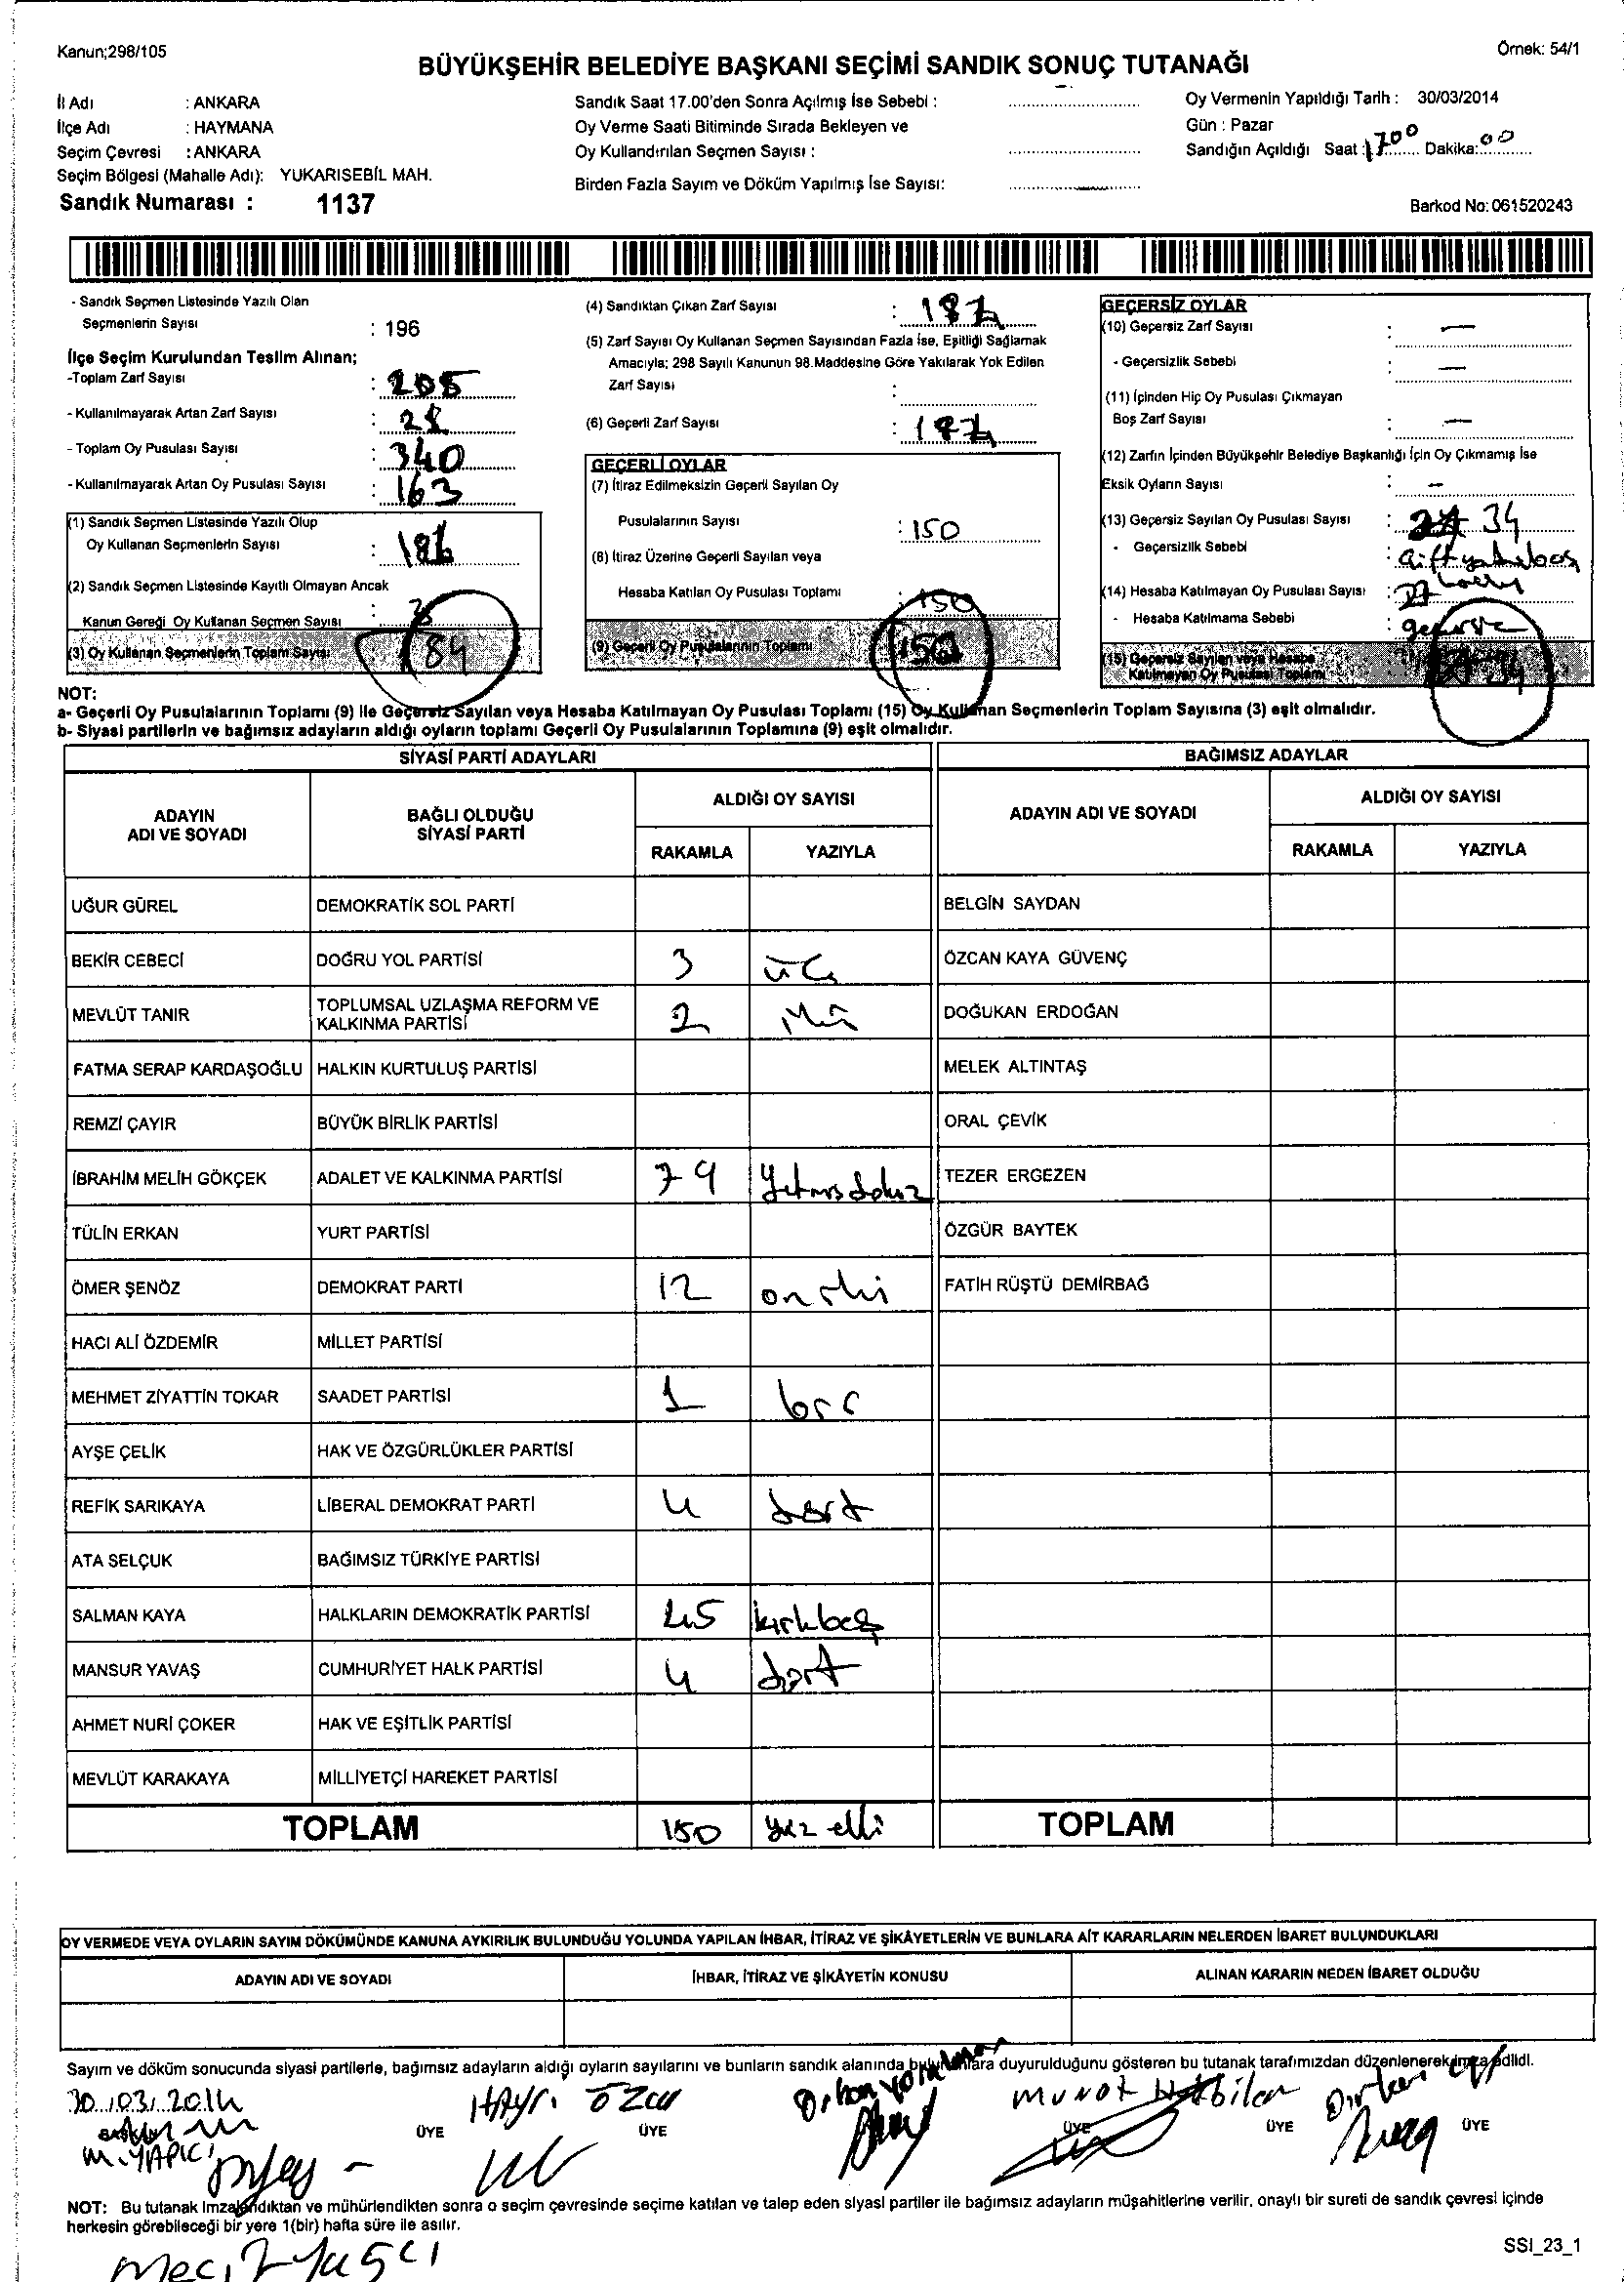 Kanun;298/105
Örnek: 54/1
BÜYÜKŞEHİR BELEDİYE BAŞKANI SEÇİMİ SANDIK SONUÇ TUTANAĞI
İl Adı : ANKARA
İlçe Adı : HAYMANA
Seçim Çevresi : ANKARA
Seçim Bölgesi (Mahalle Adı): YUKARISEBİL MAH.
Sandık Numarası : 1137
Sandık Saat 17.00'den Sonra Açılmış İse Sebebi :
Oy Verme Saati Bitiminde Sırada Bekleyen ve
Oy Kullandırılan Seçmen Sayısı :
Birden Fazla Sayım ve Döküm Yapılmış İse Sayısı:
Oy Vermenin Yapıldığı Tarih : 30/03/2014
Gün : Pazar
Sandığın Açıldığı Saat : 1700 Dakika: 00
Barkod No: 061520243
- Sandık Seçmen Listesinde Yazılı Olan
Seçmenlerin Sayısı : 196
İlçe Seçim Kurulundan Teslim Alınan;
-Toplam Zarf Sayısı : 205
- Kullanılmayarak Artan Zarf Sayısı :
- Toplam Oy Pusulası Sayısı : 340
- Kullanılmayarak Artan Oy Pusulası Sayısı : 163
(1) Sandık Seçmen Listesinde Yazılı Olup
Oy Kullanan Seçmenlerin Sayısı :
(2) Sandık Seçmen Listesinde Kayıtlı Olmayan Ancak
Kanun Gereği Oy Kullanan Seçmen Sayısı :
(3) Oy Kullanan Seçmenlerin Toplam Sayısı 184
(4) Sandıktan Çıkan Zarf Sayısı :
(5) Zarf Sayısı Oy Kullanan Seçmen Sayısından Fazla İse, Eşitliği Sağlamak
Amacıyla; 298 Sayılı Kanunun 98.Maddesine Göre Yakılarak Yok Edilen
Zarf Sayısı :
(6) Geçerli Zarf Sayısı :
GEÇERLİ OYLAR
(7) İtiraz Edilmeksizin Geçerli Sayılan Oy
Pusulalarının Sayısı : 150
(8) İtiraz Üzerine Geçerli Sayılan veya
Hesaba Katılan Oy Pusulası Toplamı : 150
(9) Geçerli Oy Pusulalarının Toplamı 150
GEÇERSİZ OYLAR
(10) Geçersiz Zarf Sayısı : —
- Geçersizlik Sebebi : —
(11) İçinden Hiç Oy Pusulası Çıkmayan
Boş Zarf Sayısı : —
(12) Zarfın İçinden Büyükşehir Belediye Başkanlığı İçin Oy Çıkmamış İse
Eksik Oyların Sayısı : —
(13) Geçersiz Sayılan Oy Pusulası Sayısı : 34
- Geçersizlik Sebebi :
(14) Hesaba Katılmayan Oy Pusulası Sayısı :
- Hesaba Katılmama Sebebi :
(15) Geçersiz Sayılan veya Hesaba
Katılmayan Oy Pusulası Toplamı 34
NOT:
a- Geçerli Oy Pusulalarının Toplamı (9) ile Geçersiz Sayılan veya Hesaba Katılmayan Oy Pusulası Toplamı (15) Oy Kullanan Seçmenlerin Toplam Sayısına (3) eşit olmalıdır.
b- Siyasi partilerin ve bağımsız adayların aldığı oyların toplamı Geçerli Oy Pusulalarının Toplamına (9) eşit olmalıdır.
SİYASİ PARTİ ADAYLARI BAĞIMSIZ ADAYLAR
ADAYIN ADI VE SOYADI BAĞLI OLDUĞU SİYASİ PARTİ ALDIĞI OY SAYISI ADAYIN ADI VE SOYADI ALDIĞI OY SAYISI
RAKAMLA YAZIYLA RAKAMLA YAZIYLA
UĞUR GÜREL DEMOKRATİK SOL PARTİ BELGİN SAYDAN
BEKİR CEBECİ DOĞRU YOL PARTİSİ 3 üç ÖZCAN KAYA GÜVENÇ
MEVLÜT TANIR TOPLUMSAL UZLAŞMA REFORM VE KALKINMA PARTİSİ 2 iki DOĞUKAN ERDOĞAN
FATMA SERAP KARDAŞOĞLU HALKIN KURTULUŞ PARTİSİ MELEK ALTINTAŞ
REMZİ ÇAYIR BÜYÜK BİRLİK PARTİSİ ORAL ÇEVİK
İBRAHİM MELİH GÖKÇEK ADALET VE KALKINMA PARTİSİ 79 yetmiş dokuz TEZER ERGEZEN
TÜLİN ERKAN YURT PARTİSİ ÖZGÜR BAYTEK
ÖMER ŞENÖZ DEMOKRAT PARTİ 12 on iki FATİH RÜŞTÜ DEMİRBAĞ
HACI ALİ ÖZDEMİR MİLLET PARTİSİ
MEHMET ZİYATTİN TOKAR SAADET PARTİSİ 1 bir
AYŞE ÇELİK HAK VE ÖZGÜRLÜKLER PARTİSİ
REFİK SARIKAYA LİBERAL DEMOKRAT PARTİ 4 dört
ATA SELÇUK BAĞIMSIZ TÜRKİYE PARTİSİ
SALMAN KAYA HALKLARIN DEMOKRATİK PARTİSİ 45 kırkbeş
MANSUR YAVAŞ CUMHURİYET HALK PARTİSİ 4 dört
AHMET NURİ ÇOKER HAK VE EŞİTLİK PARTİSİ
MEVLÜT KARAKAYA MİLLİYETÇİ HAREKET PARTİSİ
TOPLAM 150 yüz elli TOPLAM
OY VERMEDE VEYA OYLARIN SAYIM DÖKÜMÜNDE KANUNA AYKIRILIK BULUNDUĞU YOLUNDA YAPILAN İHBAR, İTİRAZ VE ŞİKÂYETLERİN VE BUNLARA AİT KARARLARIN NELERDEN İBARET BULUNDUKLARI
ADAYIN ADI VE SOYADI İHBAR, İTİRAZ VE ŞİKÂYETİN KONUSU ALINAN KARARIN NEDEN İBARET OLDUĞU
Sayım ve döküm sonucunda siyasi partilerle, bağımsız adayların aldığı oyların sayılarını ve bunların sandık alanında bulunanlara duyurulduğunu gösteren bu tutanak tarafımızdan düzenlenerek imza edildi.
30.03.2014 HAYri ÖZCU Orhan murat
M.YAPICI ÜYE ÜYE ÜYE ÜYE ÜYE
NOT: Bu tutanak imzalandıktan ve mühürlendikten sonra o seçim çevresinde seçime katılan ve talep eden siyasi partiler ile bağımsız adayların müşahitlerine verilir, onaylı bir sureti de sandık çevresi içinde
herkesin görebileceği bir yere 1(bir) hafta süre ile asılır.
SSI_23_1